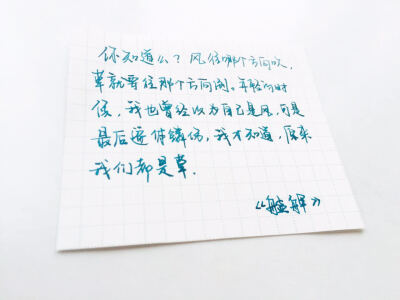 你知道么？风往哪个方向吹，
草就要往那个方向倒。年轻的时
候，我也曾经以为自己是风，可是
最后遍体鳞伤，我才知道，原来
我们都是草。
《舳舻》